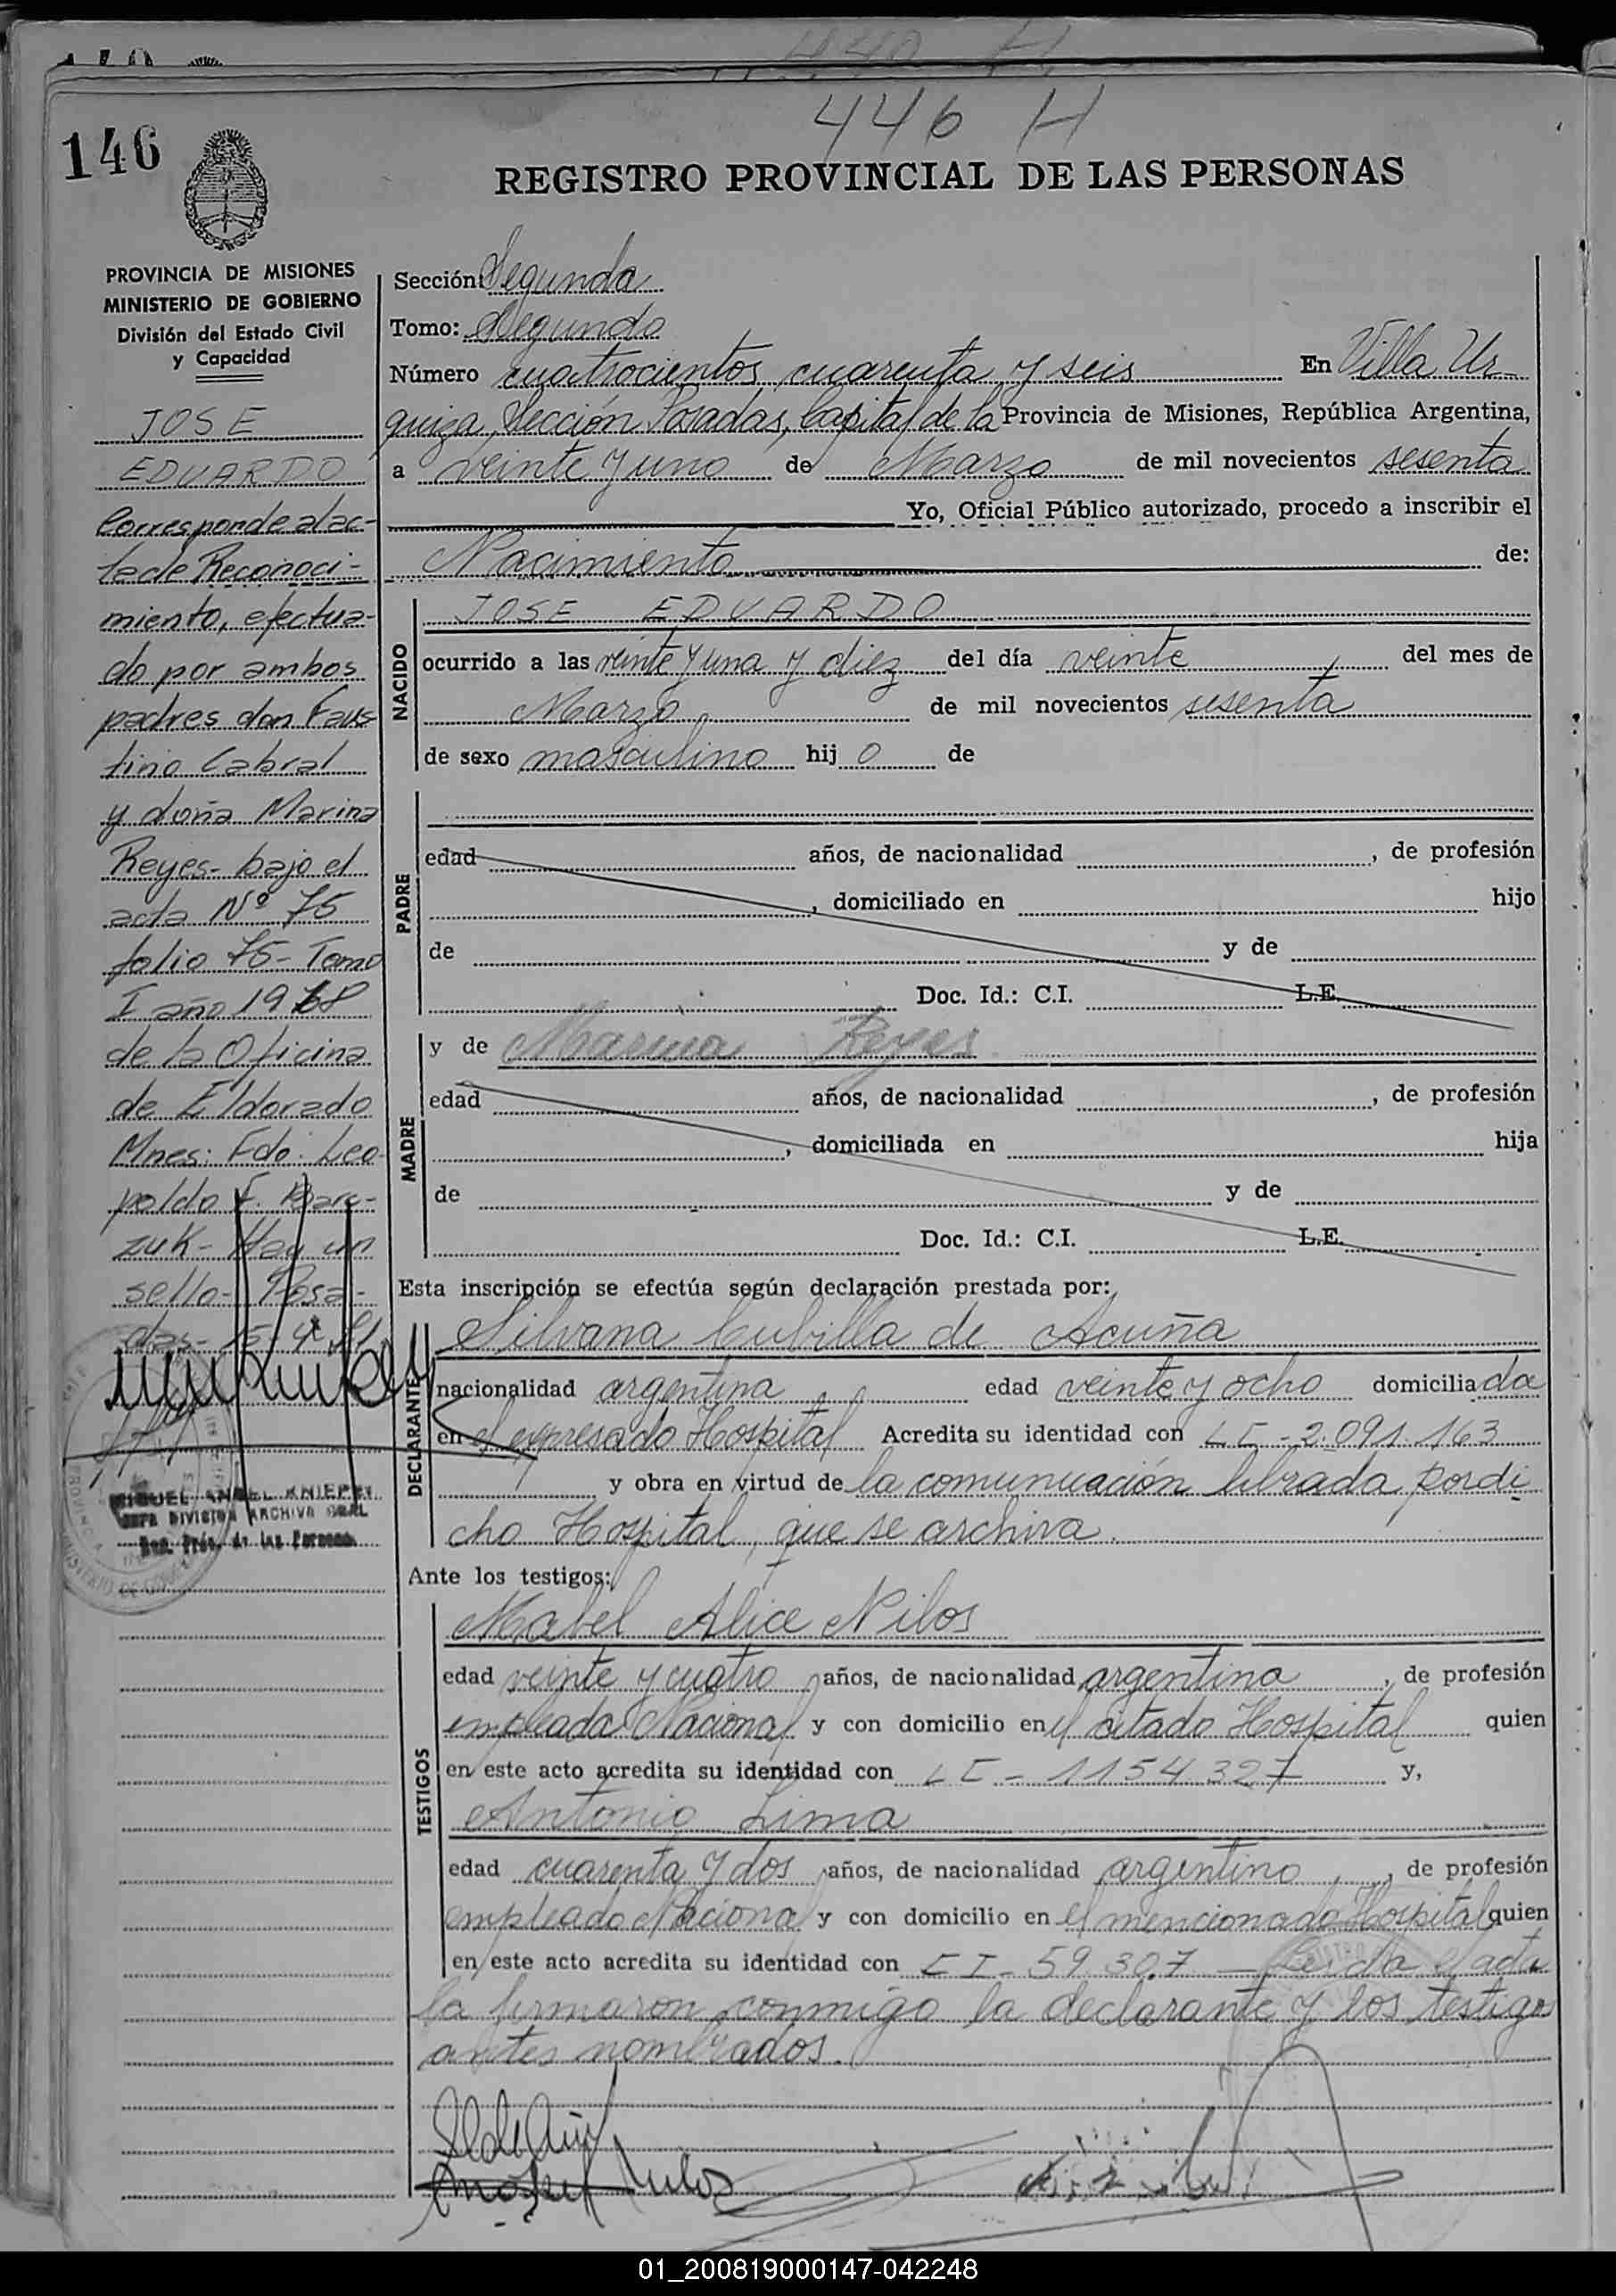 446 H
146
REGISTRO PROVINCIAL DE LAS PERSONAS
PROVINCIA DE MISIONES
MINISTERIO DE GOBIERNO
División del Estado Civil
y Capacidad
JOSE
EDUARDO
Corresponde al ac-
ta de Reconoci-
miento, efectua-
do por ambos
padres don Faus
tino Cabral
y doña Marina
Reyes- bajo el
acta Nº 75
folio 75- Tomo
I año 1968
de la Oficina
de Eldorado
Mnes: Fdo: Leo-
poldo F. Barc-
zuk- Hay un
sello- Posa-
das- 15-4-
MIGUEL ANGEL KNIEPP
DIVISION ARCHIVO GRAL
Reg. Prov. de las Personas
Sección: Segunda
Tomo: Segundo
Número cuatrocientos cuarenta y seis En Villa Ur-
quiza, Sección Posadas, Capital de la Provincia de Misiones, República Argentina,
a veinte y uno de Marzo de mil novecientos sesenta
Yo, Oficial Público autorizado, procedo a inscribir el
Nacimiento de:
NACIDO
JOSE EDUARDO
ocurrido a las veinte y una y diez del día veinte del mes de
Marzo de mil novecientos sesenta
de sexo masculino hij o de
PADRE
edad años, de nacionalidad , de profesión
, domiciliado en hijo
de y de
Doc. Id.: C.I. L.E.
y de Marina Reyes
MADRE
edad años, de nacionalidad , de profesión
, domiciliada en hija
de y de
Doc. Id.: C.I. L.E.
Esta inscripción se efectúa según declaración prestada por:
DECLARANTE
Silvana Cubilla de Acuña
nacionalidad argentina edad veinte y ocho domiciliada
en el expresado Hospital Acredita su identidad con LC - 2.091.163
y obra en virtud de la comunicación librada por di
cho Hospital, que se archiva.
Ante los testigos:
TESTIGOS
Mabel Alice Nilos
edad veinte y cuatro años, de nacionalidad argentina, de profesión
empleada Nacional y con domicilio en el citado Hospital quien
en este acto acredita su identidad con LC - 1154327 y,
Antonio Lima
edad cuarenta y dos años, de nacionalidad argentino, de profesión
empleado Nacional y con domicilio en el mencionado Hospital quien
en este acto acredita su identidad con CI - 59.307 — Leida el acta
la firmaron conmigo la declarante y los testigos
antes nombrados.
01_200819000147-042248